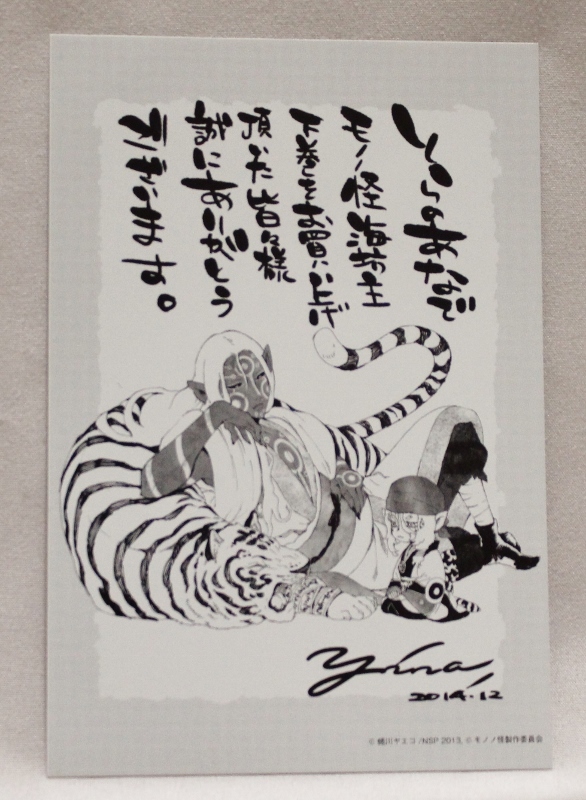 とらのあなで
モノノ怪海坊主
下巻をお買い上げ
頂いた皆々様
誠にありがとう
ございます。
2014.12
© 蜷川ヤエコ/NSP 2013, © モノノ怪製作委員会